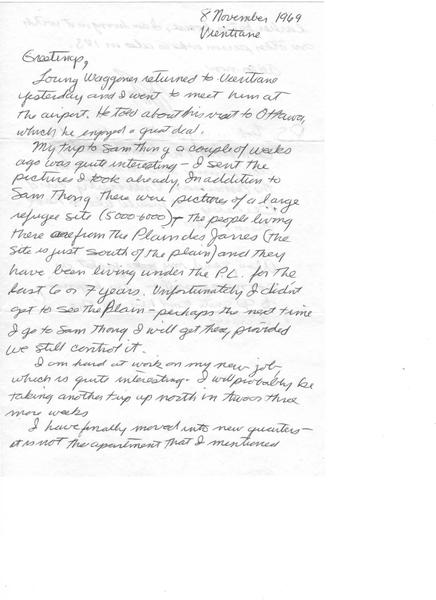 8 November 1969
Vientiane
Greetings,
Loring Waggoner returned to Vientiane
yesterday and I went to meet him at
the airport. He told about his visit to Ottawa,
which he enjoyed a great deal.
My trip to Sam Thong a couple of weeks
ago was quite interesting - I sent the
pictures I took already. In addition to
Sam Thong there were pictures of a large
refugee site (5000-6000) - the people living
there are from the Plain des Jarres (the
site is just south of the plain) and they
have been living under the P.L. for the
last 6 or 7 years. Unfortunately I didn't
get to see the Plain - perhaps the next time
I go to Sam Thong I will get there, provided
we still control it.
I am hard at work on my new job
which is quite interesting. I will probably be
taking another trip up north in two or three
more weeks
I have finally moved into new quarters -
it is not the apartment that I mentioned